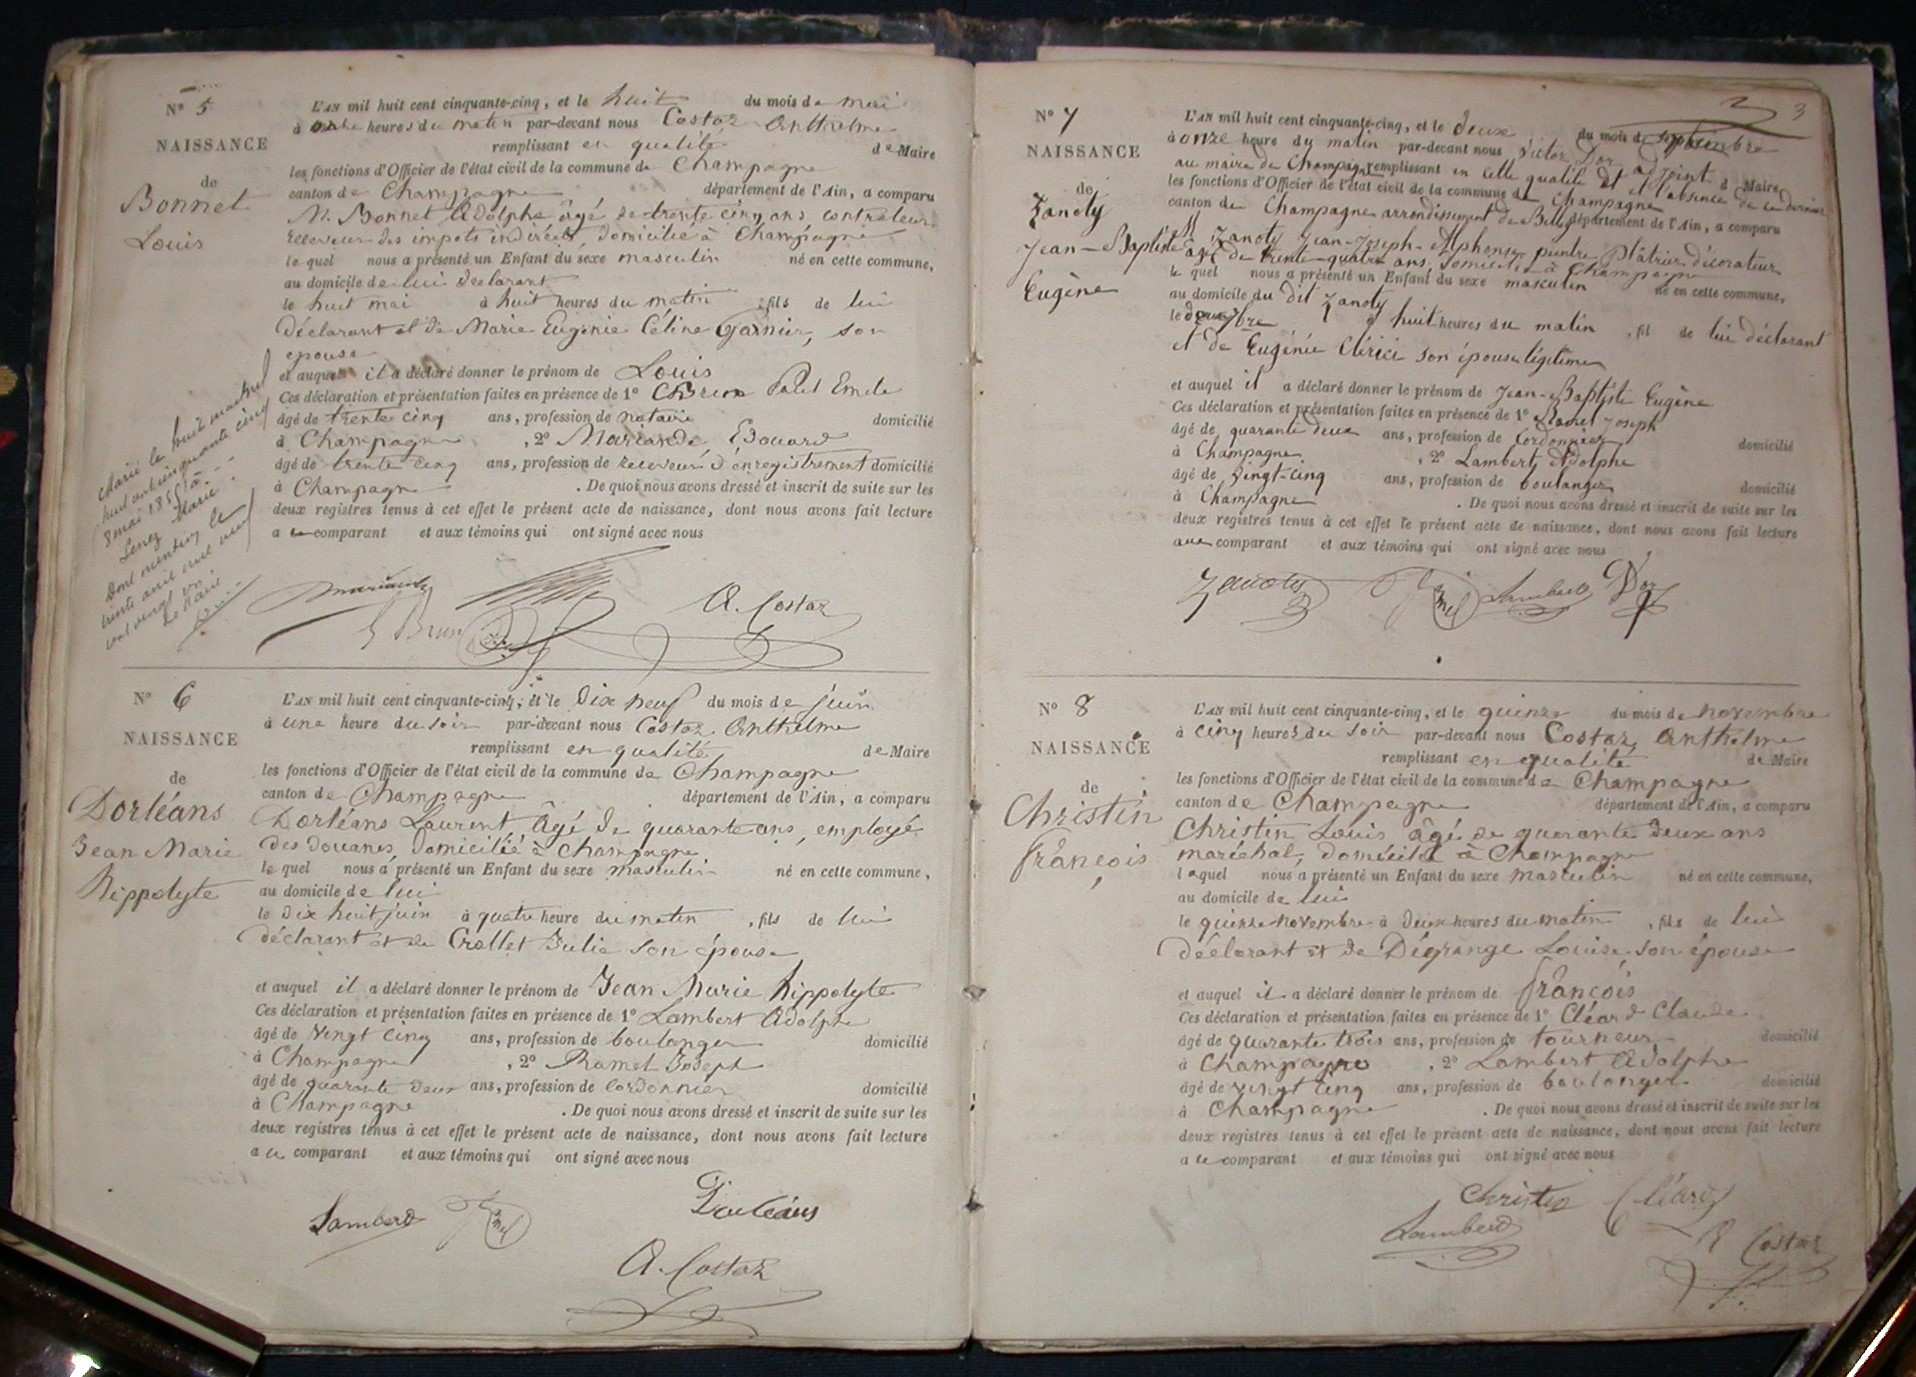 N° 5
NAISSANCE
de
Bonnet
Louis
L'AN mil huit cent cinquante-cinq, et le huit du mois de mai
à onze heures du matin par-devant nous Costaz Anthelme
remplissant en qualité de Maire
les fonctions d'Officier de l'état civil de la commune de Champagne
canton de Champagne département de l'Ain, a comparu
M. Bonnet Adolphe âgé de trente cinq ans contrôleur
Receveur des impots indirects, domicilié à Champagne
le quel nous a présenté un Enfant du sexe masculin né en cette commune,
au domicile de lui déclarant
le huit mai à huit heures du matin , fils de lui
déclarant et de Marie Eugénie Céline Garnier, son
épouse
et auquel il a déclaré donner le prénom de Louis
Ces déclaration et présentation faites en présence de 1° Brun Emile
âgé de trente cinq ans, profession de notaire domicilié
à Champagne , 2° Mariande Edouard
âgé de trente cinq ans, profession de receveur d'enregistrement domicilié
à Champagne . De quoi nous avons dressé et inscrit de suite sur les
deux registres tenus à cet effet le présent acte de naissance, dont nous avons fait lecture
a ce comparant et aux témoins qui ont signé avec nous
Marié le huit mai
8 mai 185
Marie
Dont mention le
Le Maire
Mariande
Brun
A. Costaz
N° 6
NAISSANCE
de
Dorléans
Jean Marie
hippolyte
L'AN mil huit cent cinquante-cinq, et le dix neuf du mois de juin
à une heure du soir par-devant nous Costaz Anthelme
remplissant en qualité de Maire
les fonctions d'Officier de l'état civil de la commune de Champagne
canton de Champagne département de l'Ain, a comparu
Dorléans Laurent âgé de quarante ans, employé
des douanes, domicilié à Champagne
le quel nous a présenté un Enfant du sexe masculin né en cette commune,
au domicile de lui
le dix huit juin à quatre heure du matin , fils de lui
déclarant et de Crollet Julie son épouse
et auquel il a déclaré donner le prénom de Jean Marie hippolyte
Ces déclaration et présentation faites en présence de 1° Lambert Adolphe
âgé de vingt cinq ans, profession de boulanger domicilié
à Champagne , 2° Ramel Joseph
âgé de quarante deux ans, profession de cordonnier domicilié
à Champagne . De quoi nous avons dressé et inscrit de suite sur les
deux registres tenus à cet effet le présent acte de naissance, dont nous avons fait lecture
a ce comparant et aux témoins qui ont signé avec nous
Lambert Ramel Dorléans
A. Costaz
3
N° 7
NAISSANCE
de
Zanoty
Jean-Baptiste
Eugène
L'AN mil huit cent cinquante-cinq, et le deux du mois de septembre
à onze heure du matin par-devant nous Victor Dor adjoint
au maire de Champagne remplissant en cette qualité et à l'absence de ce dernier d Maire
les fonctions d'Officier de l'état civil de la commune de Champagne
canton de Champagne arrondissement de Belley département de l'Ain, a comparu
Zanoty Jean-Joseph-Alphonse, peintre Plâtrier décorateur
âgé de trente-quatre ans, domicilié à Champagne
le quel nous a présenté un Enfant du sexe masculin né en cette commune,
au domicile du dit Zanoty
le deux 7bre à huit heures du matin , fil de lui déclarant
et de Eugénie Clérici son épouse légitime
et auquel il a déclaré donner le prénom de Jean-Baptiste Eugène
Ces déclaration et présentation faites en présence de 1° Ramel Joseph
âgé de quarante deux ans, profession de Cordonnier domicilié
à Champagne , 2° Lambert Adolphe
âgé de vingt-cinq ans, profession de boulanger domicilié
à Champagne . De quoi nous avons dressé et inscrit de suite sur les
deux registres tenus à cet effet le présent acte de naissance, dont nous avons fait lecture
aux comparant et aux témoins qui ont signé avec nous
Zanoty Ramel Lambert Dor
N° 8
NAISSANCE
de
Christin
françois
L'AN mil huit cent cinquante-cinq, et le quinze du mois de novembre
à cinq heures du soir par-devant nous Costaz Anthelme
remplissant en qualité de Maire
les fonctions d'Officier de l'état civil de la commune de Champagne
canton de Champagne département de l'Ain, a comparu
Christin Louis âgé de quarante deux ans
maréchal, domicilié à Champagne
lequel nous a présenté un Enfant du sexe masculin né en cette commune,
au domicile de lui
le quinze novembre à deux heures du matin , fils de lui
déclarant et de Dégrange Louise son épouse
et auquel il a déclaré donner le prénom de françois
Ces déclaration et présentation faites en présence de 1° Cléard Claude
âgé de quarante trois ans, profession de tourneur domicilié
à Champagne , 2° Lambert Adolphe
âgé de vingt cinq ans, profession de boulanger domicilié
à Champagne . De quoi nous avons dressé et inscrit de suite sur les
deux registres tenus à cet effet le présent acte de naissance, dont nous avons fait lecture
a ce comparant et aux témoins qui ont signé avec nous
Christin Cléard
Lambert
A Costaz